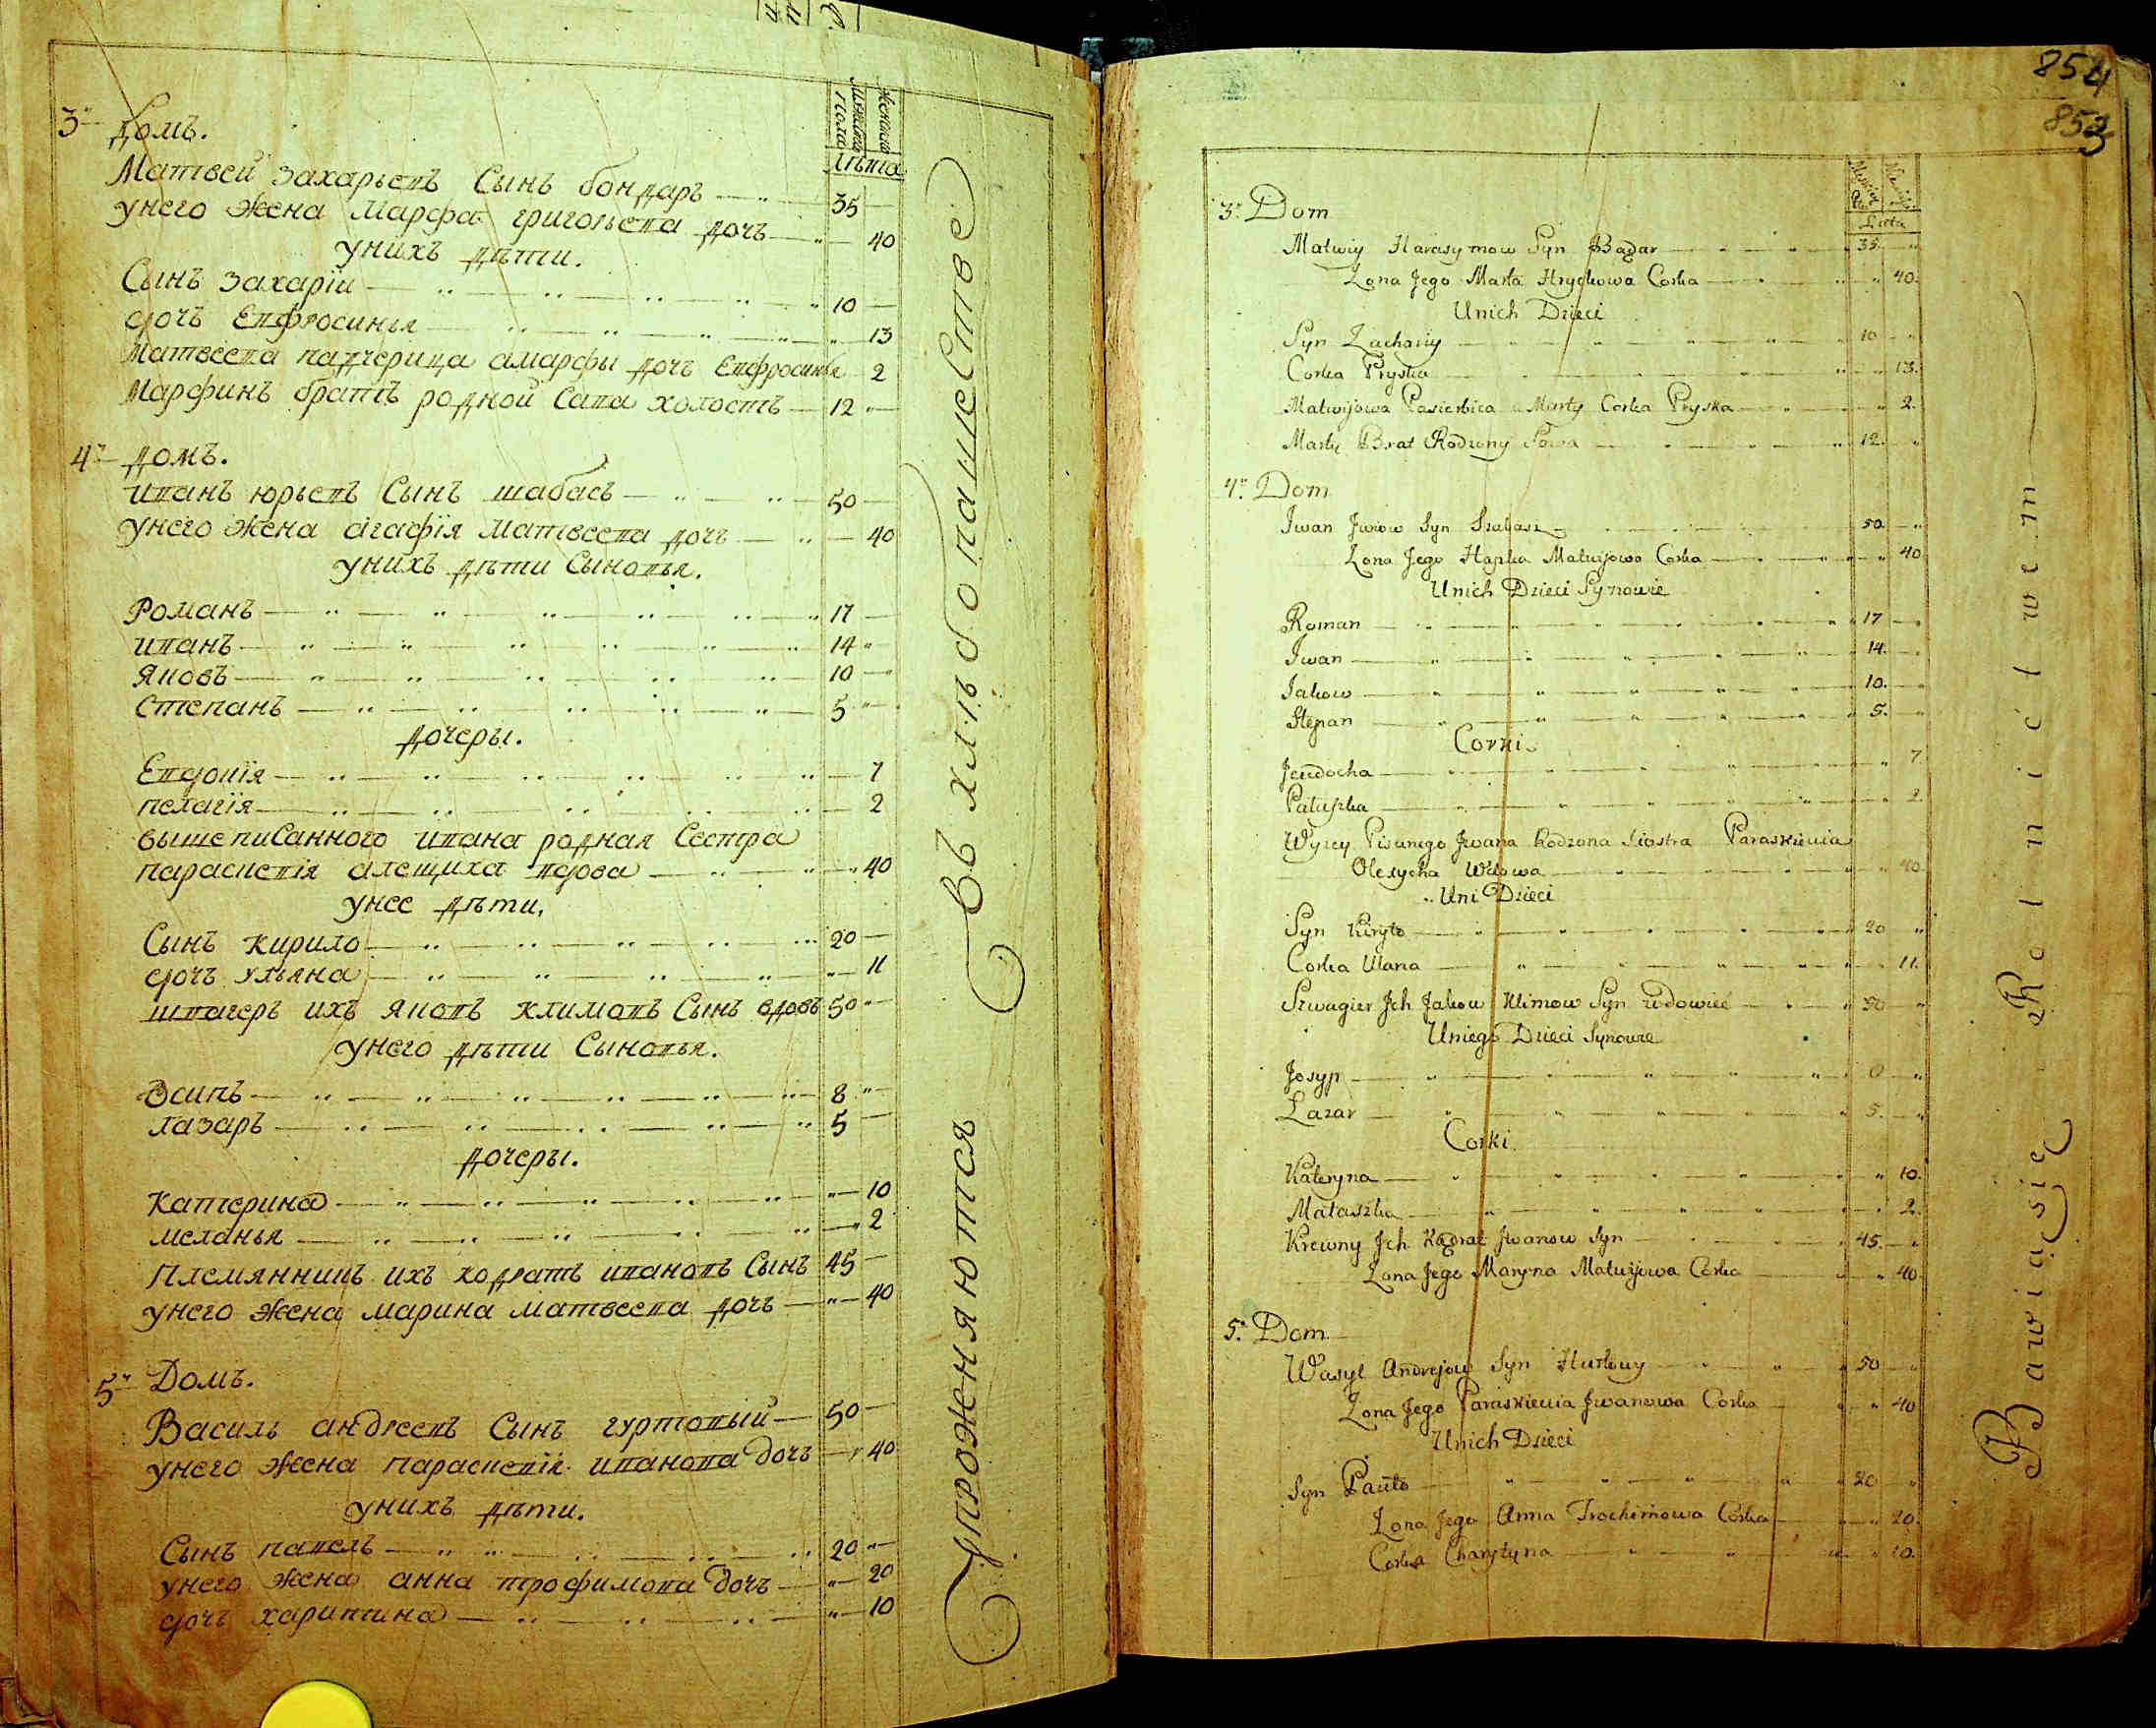 Мужеска пола
Женска
Лѣта
3й Домъ.
Матвей захарьевъ Сынъ бондаръ 35
унего жена Марфа григорьева дочь 40
унихъ дѣти.
Сынъ захарiи 10
дочь Евфросинья 13
Матвеева падчерица амарфы дочь Евфросинья 2
Марфинъ братъ родной Сава холостъ 12
4й домъ.
иванъ юрьевъ Сынъ шабасъ 50
унего жена агафiя Матвеева дочь 40
унихъ дѣти Сыновья.
Романъ 17
иванъ 14
Яковъ 10
Степанъ 5
дочеры.
Евдокiя 7
пелагiя 2
вышеписанного ивана родная Сестра
параскевiя алещиха вдова 40
унее дѣти.
Сынъ кирило 20
дочь ульяна 11
швагеръ ихъ яковъ климовъ Сынъ вдовъ 50
унего дѣти Сыновья.
Осипъ 8
лазаръ 5
дочеры.
Катерина 10
меланья 2
Племянникъ ихъ кодратъ ивановъ Сынъ 45
унего жена марина матвеева дочь 40
5й Домъ.
Василь андреевъ Сынъ гуртовый 50
унего жена параскевiя иванова дочь 40
унихъ дѣти.
Сынъ павелъ 20
унего жена анна трофимова дочь 20
дочь харитина 10
Упроженяются въ хлѣбопашестве
854
853
Lieta
3. Dom
Matwiy Harasymow Syn Bądar 35.
Zona Jego Marta Hryckowa Corka 40.
Unich Dzieci
Syn Zachariy 10
Corka Pryska 13.
Matwijowa Pasierbica a Marty Corka Pryska 2.
Marty Brat Rodzony Sowa 12.
4. Dom
Jwan Jurow Syn Szabasz 50.
Zona Jego Hapka Matwijowa Corka 40
Unich Dzieci Synowie
Roman 17
Jwan 14.
Jakow 10.
Stepan 5.
Corki.
Jewdocha 7
Palaszka 2.
Wyzey Pisanego Jwana Rodzona Siostra Paraskiewia
Olexycha Wdowa 40
Uni Dzieci
Syn Kiryło 20
Corka Ulana 11.
Szwagier Jch Jakow Klimow Syn wdowiec 50
Uniego Dzieci Synowie
Josyp 0
Łazar 5.
Corki
Kateryna 10.
Małaszka 2.
Krewny Jch Kądrat Jwanow Syn 45.
Zona Jego Maryna Matwijowa Corka 40.
5. Dom
Wasyl Andrejow Syn Hurtowy 50
Zona Jego Paraskiewia Jwanowa Corka 40
Unich Dzieci
Syn Pawło 20
Zona Jego Anna Trochimowa Corka 20.
Corka Charytyna 10.
Bawią się Rolnictwem